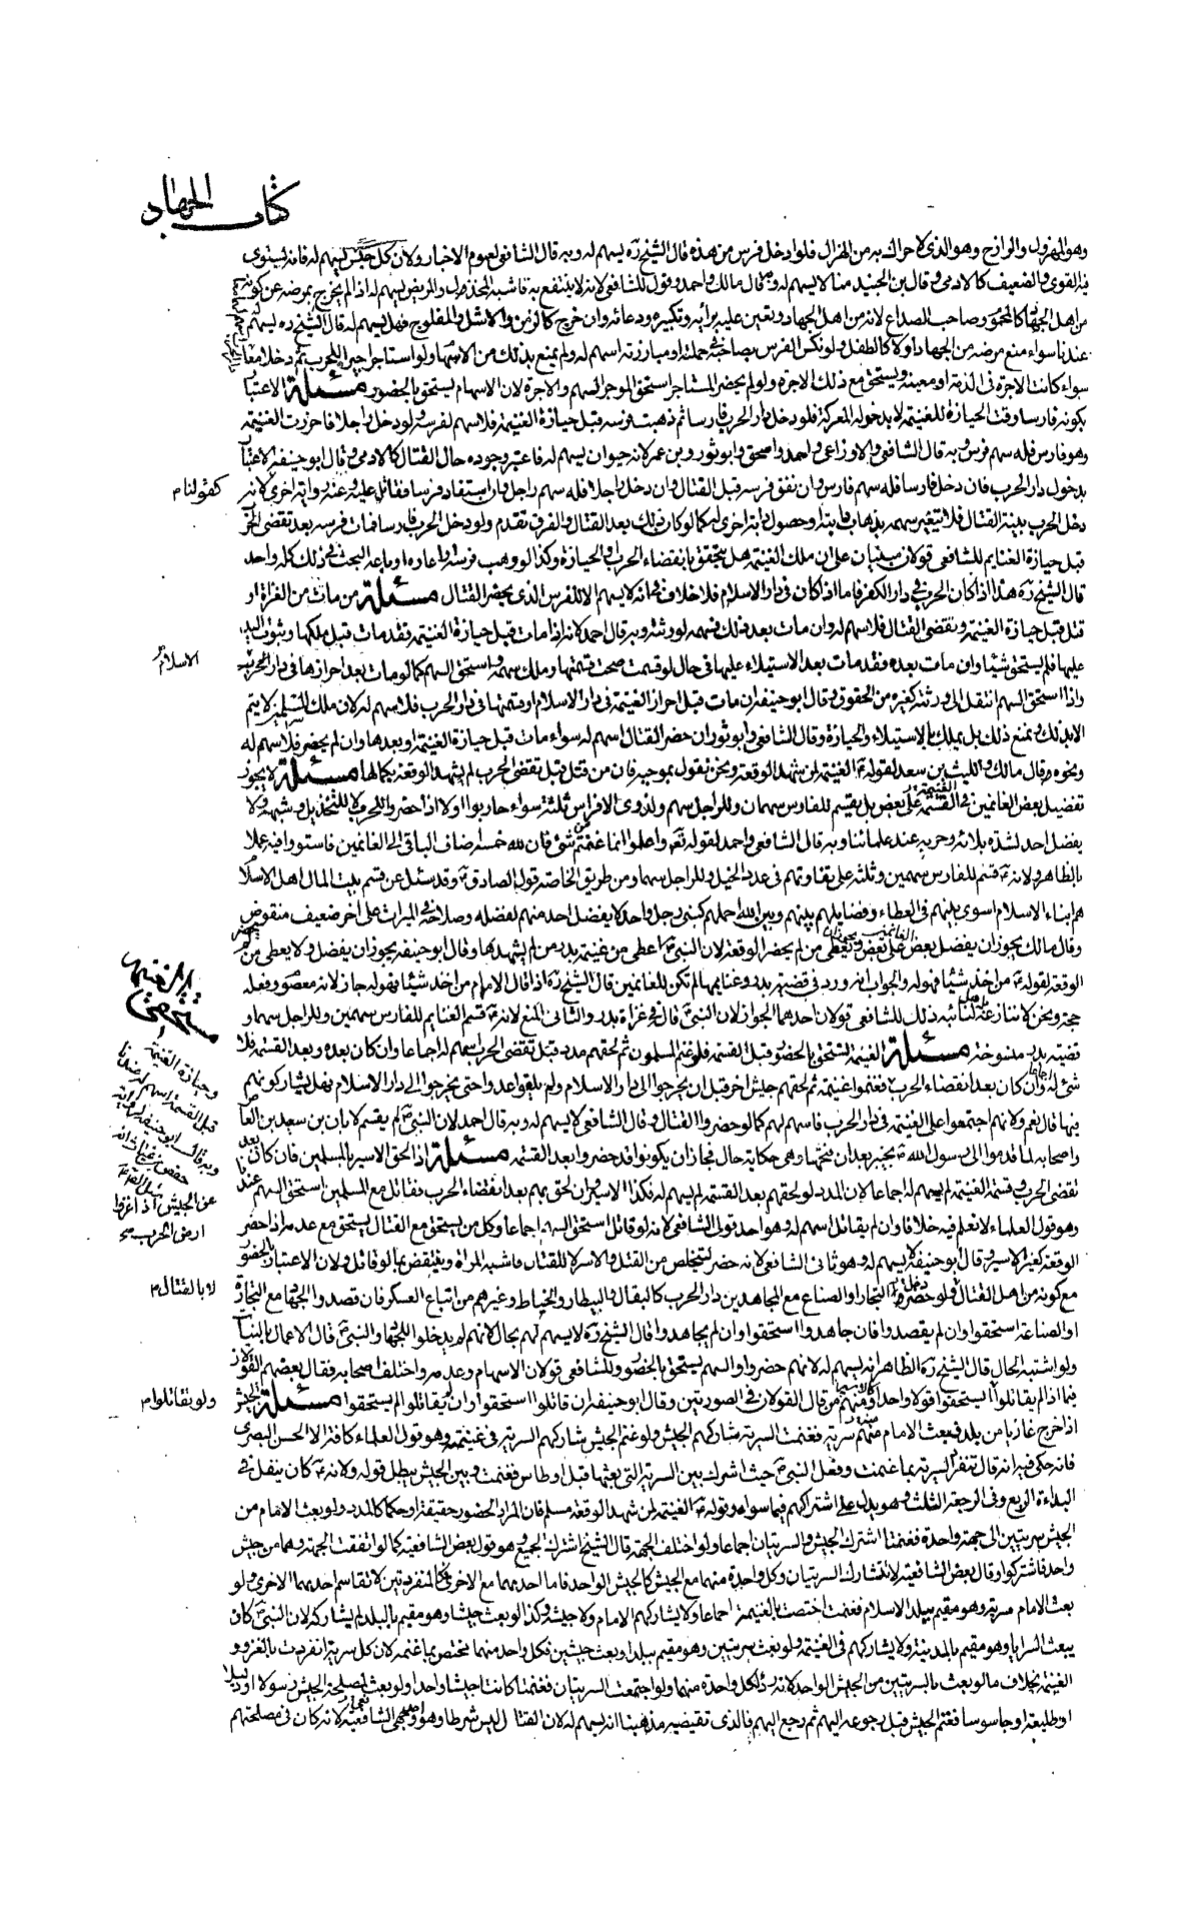 كتاب الجهاد
وهو المهزول والرازح وهو الذى لا حراك به من الهزال فلو ادخل فرس من هذه قال الشيخ ره يسهم له وبه قال الشافعى لعموم الاخبار ولان كل جيش يسهم له فانه يستوى
فيه القوى والضعيف كالادمى وقال بن الجنيد منا لا يسهم له وبه قال مالك واحمد وقول للشافعى لانه لا ينتفع به فاشبه المخذول والمريض يسهم له اذا لم يخرج بمرضه عن كونه
من اهل الجهاد كالمحموم وصاحب الصداع لانه من اهل الجهاد ويعين عليه برائه وتكبيره ودعائه وان خرج كالزمن والاشل والمفلوج فهل يسهم له قال الشيخ ره يسهم له
عندنا سواء منع مرضه من الجهاد اولا كالطفل ولو نكس الفرس بصاحبه فى حملته او مبارزته اسهم له ولم يمنع بذلك من الاسهام ولو استاجر اجيرا للحرب ثم دخلا معا
سواء كانت الاجرة فى الذمة او معينة ويستحق مع ذلك الاجرة ولو لم يحضر المستاجر استحق الموجر السهم والاجرة لان الاسهام يستحق بالحضور مسئلة الاعتبار
بكونه فارسا وقت الحيازة للغنيمة لا بدخوله المعركة فلو دخل دار الحرب فارسا ثم ذهبت فرسه قبل حيازة الغنيمة فلا سهم لفرسه ولو دخل راجلا فاحرزت الغنيمة
وهو فارس فله سهم فرس وبه قال الشافعى والاوزاعى واحمد واسحق وابو ثور وبن عمر لانه حيوان يسهم له فاعتبر وجوده حال القتال كالادمى وقال ابو حنيفة الاعتبار
بدخول دار الحرب فان دخل فارسا فله سهم فارس وان نفق فرسه قبل القتال وان دخل راجلا فله سهم راجل وان استفاد فرسا فقاتل عليه وعنه رواية اخرى لانه
كقولنا م
دخل الحرب بنية القتال فلا يتغير سهمه بذهاب دابته او حصول دابة اخرى له كما لو كان ذلك بعد القتال والفرق تقدم ولو دخل الحرب فارسا فمات فرسه بعد تقضى الحرب
قبل حيازة الغنايم للشافعى قولان مبنيان على ان ملك الغنيمة هل يتحقق بانقضاء الحرب او الحيازة وكذا لو وهب فرسه او اعاره او باعه البحث فى ذلك كله واحد
قال الشيخ ره هذا اذا كان الحرب فى دار الكفر فاما اذا كان فى دار الاسلام فلا خلاف فى انه لا يسهم الا للفرس الذى يحضر القتال مسئلة من مات من الغزاة او
قتل قبل حيازة الغنيمة وتقضى القتال فلا سهم له وان مات بعد ذلك فسهمه لورثته وبه قال احمد لانه اذا مات قبل حيازة الغنيمة فقد مات قبل ملكها وثبوت اليد
عليها فلم يستحق شيئا وان مات بعده فقد مات بعد الاستيلاء عليها فى حال لو قسمت صحت قسمتها وملك سهمه واستحق السهم كما لو مات بعد احرازها فى دار الحرب
الاسلام صح
واذا استحق السهم انتقل الى ورثته كغيره من الحقوق وقال ابو حنيفة ان مات قبل احراز الغنيمة فى دار الاسلام او قسمتها فى دار الحرب فلا سهم له لان ملك المسلمين لا يتم
الا بذلك ونمنع ذلك بل يملك بالاستيلاء والحيازة وقال الشافعى وابو ثور ان حضر القتال اسهم له سواء مات قبل حيازة الغنيمة او بعدها وان لم يحضر فلا سهم له
ونحوه قال مالك والليث بن سعد لقوله ع الغنيمة لمن شهد الوقعة ونحن نقول بموجبه فان من قتل قبل تقضى الحرب لم يشهد الوقعة بكمالها مسئلة لا يجوز
تفضيل بعض الغانمين فى القسمة على بعض بل يقسم للفارس سهمان وللراجل سهم ولذوى الافراس ثلثة سواء حاربوا اولا اذا حضروا للحرب لا للتخذيل وشبهه ولا
يفضل احد لشدة بلائه وحربه عند علمائنا وبه قال الشافعى واحمد لقوله تعه واعلموا انما غنمتم من شئ فان لله خمسه اضاف الباقى الى الغانمين فاستووا فيه عملا
بالظاهر ولانه ع قسم للفارس سهمين وثلثة على تفاوتهم فى عدد الخيل وللراجل سهما ومن طريق الخاصة قول الصادق ع وقد سئل عن قسم بيت المال اهل الاسلام
هم ابناء الاسلام اسوى بينهم فى العطاء وفضايلهم بينهم وبين الله اجملهم كبنى رجل واحد لا يفضل احد منهم لفضله وصلاحه فى الميراث على اخر ضعيف منقوص
وقال مالك يجوز ان يفضل بعض الغانمين على بعض ويجوز ان يعطى من لم يحضر الوقعة لان النبى ص اعطى من غنيمة بدر من لم يشهدها وقال ابو حنيفة يجوز ان يفضل ولا يعطى من لم يحضر
الوقعة لقوله ع من اخذ شيئا فهو له والجواب انه ورد فى قضية بدر وغنايمها لم تكن للغانمين قال الشيخ ره اذا قال الامام من اخذ شيئا فهو له جاز لانه معصوم وفعله
حجة ونحن لا ننازعه لنيابته ذلك للشافعى قولان احدهما الجواز لان النبى ص قال فى غزاة بدر والثانى المنع لانه ع قسم الغنايم للفارس سهمين وللراجل سهما و
قضية بدر منسوخة مسئلة الغنيمة تستحق بالحضور قبل القسمة فلو غنم المسلمون ثم لحقهم مدد قبل تقضى الحرب اسهم له اجماعا وان كان بعده وبعد القسمة فلا
شئ له وان كان بعد انقضاء الحرب فغنموا غنيمة ثم لحقهم جيش اخر قبل ان يخرجوا الى دار الاسلام ولم يلقوا عدوا حتى يخرجوا الى دار الاسلام فهل يشاركونهم
فيها قال نعم ولانهم اجتمعوا على الغنيمة فى دار الحرب فاسهم لهم كما لو حضروا القتال وقال الشافعى لا يسهم له وبه قال احمد لان النبى ص لم يقسم لابان بن سعيد بن العاص
واصحابه لما قدموا الى رسول الله ص بخيبر بعد ان فتحها وهى حكاية حال فجاز ان يكونوا قد حضروا بعد القسمة مسئلة اذا لحق الاسير بالمسلمين فان كان بعد
وحيازة الغنيمة
قبل القسمة اسهم له عندنا
وبه قال ابو حنيفة لرواية
حفص بن غياث انه
عن الجيش اذا غزوا
ارض الحرب صح
تقضى الحرب وقسمة الغنيمة لم يسهم له اجماعا لان المدد لو لحقهم بعد القسمة لم يسهم له فكذا الاسير وان لحق بهم بعد انقضاء الحرب فقاتل مع المسلمين استحق السهم عندنا
وهو قول العلماء لا نعلم فيه خلافا وان لم يقاتل اسهم له وهو احد قولى الشافعى لانه لو قاتل استحق السهم اجماعا وكل من يستحق مع القتال يستحق مع عدمه اذا حضر
الوقعة كغير الاسير وقال ابو حنيفة لا يسهم له وهو ثانى الشافعى لانه حضر لتخلص من القتل والاسر لا للقتال فاشبه المراة وينتقض بما لو قاتل ولان الاعتبار بالحضور
لا بالقتال م
مع كونه من اهل القتال ولو حضر دخل التجار او الصناع مع المجاهدين دار الحرب كالبقال والبيطار والخياط وغيرهم من اتباع العسكر فان قصدوا الجهاد مع التجارة
او الصناعة استحقوا وان لم يقصدوا فان جاهدوا استحقوا وان لم يجاهدوا قال الشيخ ره لا يسهم لهم بحال لانهم لم يدخلوا للجهاد والنبى ص قال الاعمال بالنيات
ولو اشتبه الحال قال الشيخ ره الظاهر انه يسهم له لانهم حضروا والسهم يستحق بالحضور وللشافعى قولان الاسهام وعدمه واختلف اصحابه فقال بعضهم القولان
فيما اذا لم يقاتلوا لم يستحقوا قولا واحدا ومنهم من قال القولان فى الصورتين وقال ابو حنيفة ان قاتلوا استحقوا وان لم يقاتلوا لم يستحقوا مسئلة الجيش
ولو يقاتلوا م
اذا خرج غازيا من بلد فبعث الامام منهم سرية فغنمت السرية شاركهم الجيش ولو غنم الجيش شاركهم السرية فى غنيمته وهو قول العلماء كافة الا الحسن البصرى
فانه حكى فيه انه قال تنفرد السرية بما غنمت وفعل النبى ص حيث اشرك بين السرية التى بعثها قبل اوطاس فغنمت وبين الجيش يبطل قوله ولانه ع كان ينفل فى
البداءة الربع وفى الرجعة الثلث وهو يدل على اشتراكهم فيما سواه وقوله ع الغنيمة لمن شهد الوقعة مسلم فان المراد الحضور حقيقة او حكما كالمدد ولو بعث الامام من
الجيش سريتين الى جهة واحدة فغنمتا اشترك الجيش والسريتان اجماعا ولو اختلف الجهة قال الشيخ اشترك الجميع وهو قول بعض الشافعية كما لو اتفقت الجهة وهما من جيش
واحد فاشتركوا وقال بعض الشافعية لا تتشارك السريتان وكل واحدة منهما مع الجيش كالجيش الواحد فاما احديهما مع الاخرى كالمنفردتين لا تقاسم احديهما الاخرى ولو
بعث الامام سرية وهو مقيم ببلد الاسلام فغنمت اختصت بالغنيمة اجماعا ولا يشاركهم الامام ولا جيشه وكذا لو بعث جيشا وهو مقيم بالبلد لم يشاركه لان النبى ص كان
يبعث السرايا وهو مقيم بالمدينة ولا يشاركهم فى الغنيمة ولو بعث سريتين وهو مقيم ببلد او بعث جيشين فكل واحد منهما مختص بما غنمه لان كل سرية انفردت بالغزو و
الغنيمة بخلاف ما لو بعث بالسريتين من الجيش الواحد لانه ردء لكل واحدة منهما ولو اجتمعت السريتان فغنمتا كانتا جيشا واحدا ولو بعث لمصلحة الجيش رسولا او دليلا
او طليعة او جاسوسا فغنم الجيش قبل رجوعه اليهم ثم رجع اليهم فالذى تقتضيه مذهبنا انه يسهم له لان القتال ليس شرطا وهو وجهى الشافعية لانه كان فى مصلحتهم